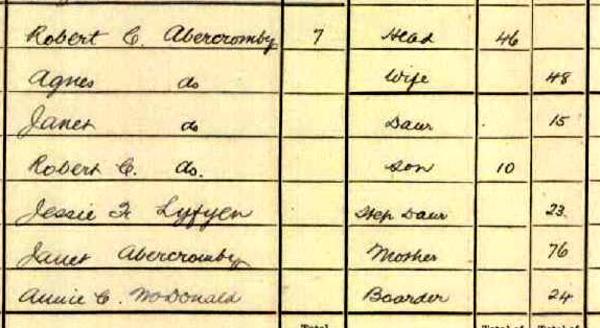 Robert C. Abercromby 7 Head 46
Agnes do Wife 48
Janet do Daur 15
Robert C. do. Son 10
Jessie F. Step Daur 23
Janet Abercromby Mother 76
Annie C. McDonald Boarder 24
Total Total of Total of